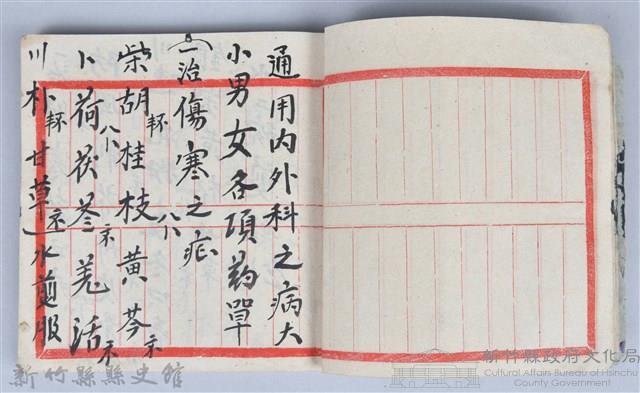 通用内外科之病大
小男女各項葯單
一治傷寒之症
柴胡 桂枝 黃芩
卜荷 茯苓 羗活
川朴 甘草 水煎服
新竹縣縣史館
新竹縣政府文化局
Cultural Affairs Bureau of Hsinchu
County Government